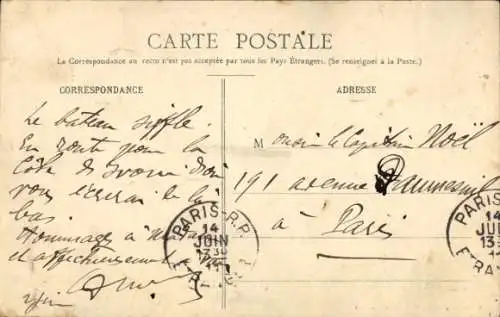 CARTE POSTALE
La Correspondance au recto n'est pas acceptée par tous les Pays Étrangers. (Se renseigner à la Poste.)
CORRESPONDANCE
ADRESSE
Le bateau siffle.
En route pour la
Côte de d'où
vous de là
bas
Hommages à
et
Monsieur le Capitaine Noël
191 avenue Daumesnil
à Paris
PARIS R.P.
14
JUIN
13
ETRANGER
PARIS
14
13